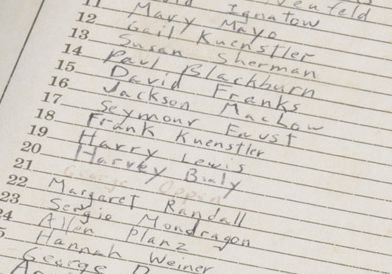 Ignatow
11 Mary Mayo
12 Gail Kuenstler
13 Susan Sherman
14 Paul Blackburn
15 David Franks
16 Jackson MacLow
17 Seymour Faust
18 Frank Kuenstler
19 Harry Lewis
20 Harvey Bialy
21 George Oppen
22 Margaret Randall
23 Sergio Mondragon
24 Allen Planz
Hannah Weiner
George